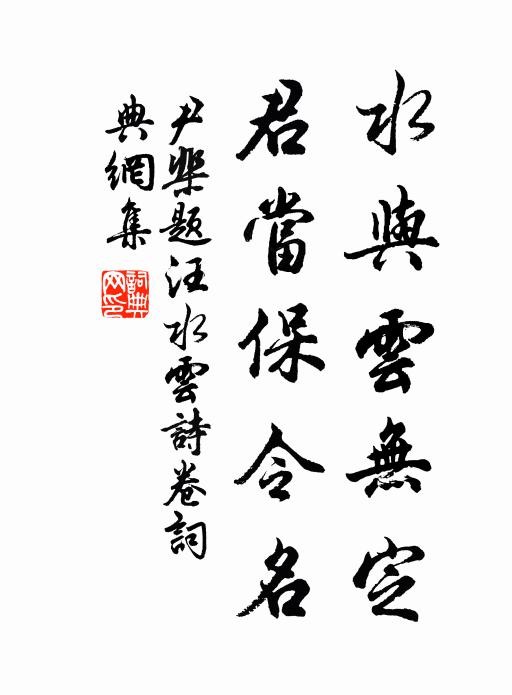 水與雲無定
君當保令名
尹檗題汪水雲詩卷詞
典網集
詞典
网印